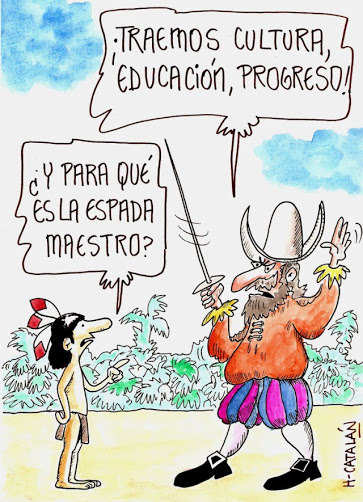 ¡TRAEMOS CULTURA,
EDUCACIÓN, PROGRESO!
¿Y PARA QUÉ
ES LA ESPADA
MAESTRO?
H-CATALÁN